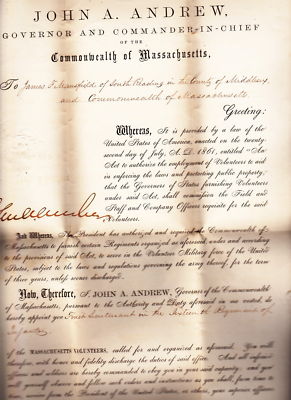 JOHN A. ANDREW,
GOVERNOR AND COMMANDER-IN-CHIEF
OF THE
Commonwealth of Massachusetts,
To James F. Mansfield of South Reading in the County of Middlesex
and Commonwealth of Massachusetts
Greeting:
Whereas, It is provided by a law of the
United States of America, enacted on the twenty-
second day of July, A. D. 1861, entitled "An
Act to authorize the employment of Volunteers to aid
in enforcing the laws and protecting public property,"
that the Governors of States furnishing Volunteers
under said Act, shall commission the Field and
Staff and Company Officers requisite for the said
Volunteers.
And Whereas, The President has authorized and required the Commonwealth of
Massachusetts to furnish certain Regiments organized as aforesaid, under and according
to the provisions of said Act, to serve in the Volunteer Military force of the United
States, subject to the laws and regulations governing the army thereof, for the term
of three years, unless sooner discharged.
Now, Therefore, I, JOHN A. ANDREW, Governor of the Commonwealth
of Massachusetts, pursuant to the Authority and Duty aforesaid in me vested, do
hereby appoint you Lieutenant in the Sixteenth Regiment of
Infantry
of the MASSACHUSETTS VOLUNTEERS, called for and organized as aforesaid. You will
with honor and fidelity discharge the duties of said office. And all inferior
officers and soldiers are hereby commanded to obey you in your said capacity, and
you will yourself observe and follow such orders and instructions as you shall, from time to
time, receive from the President of the United States, or others, your superior officers.